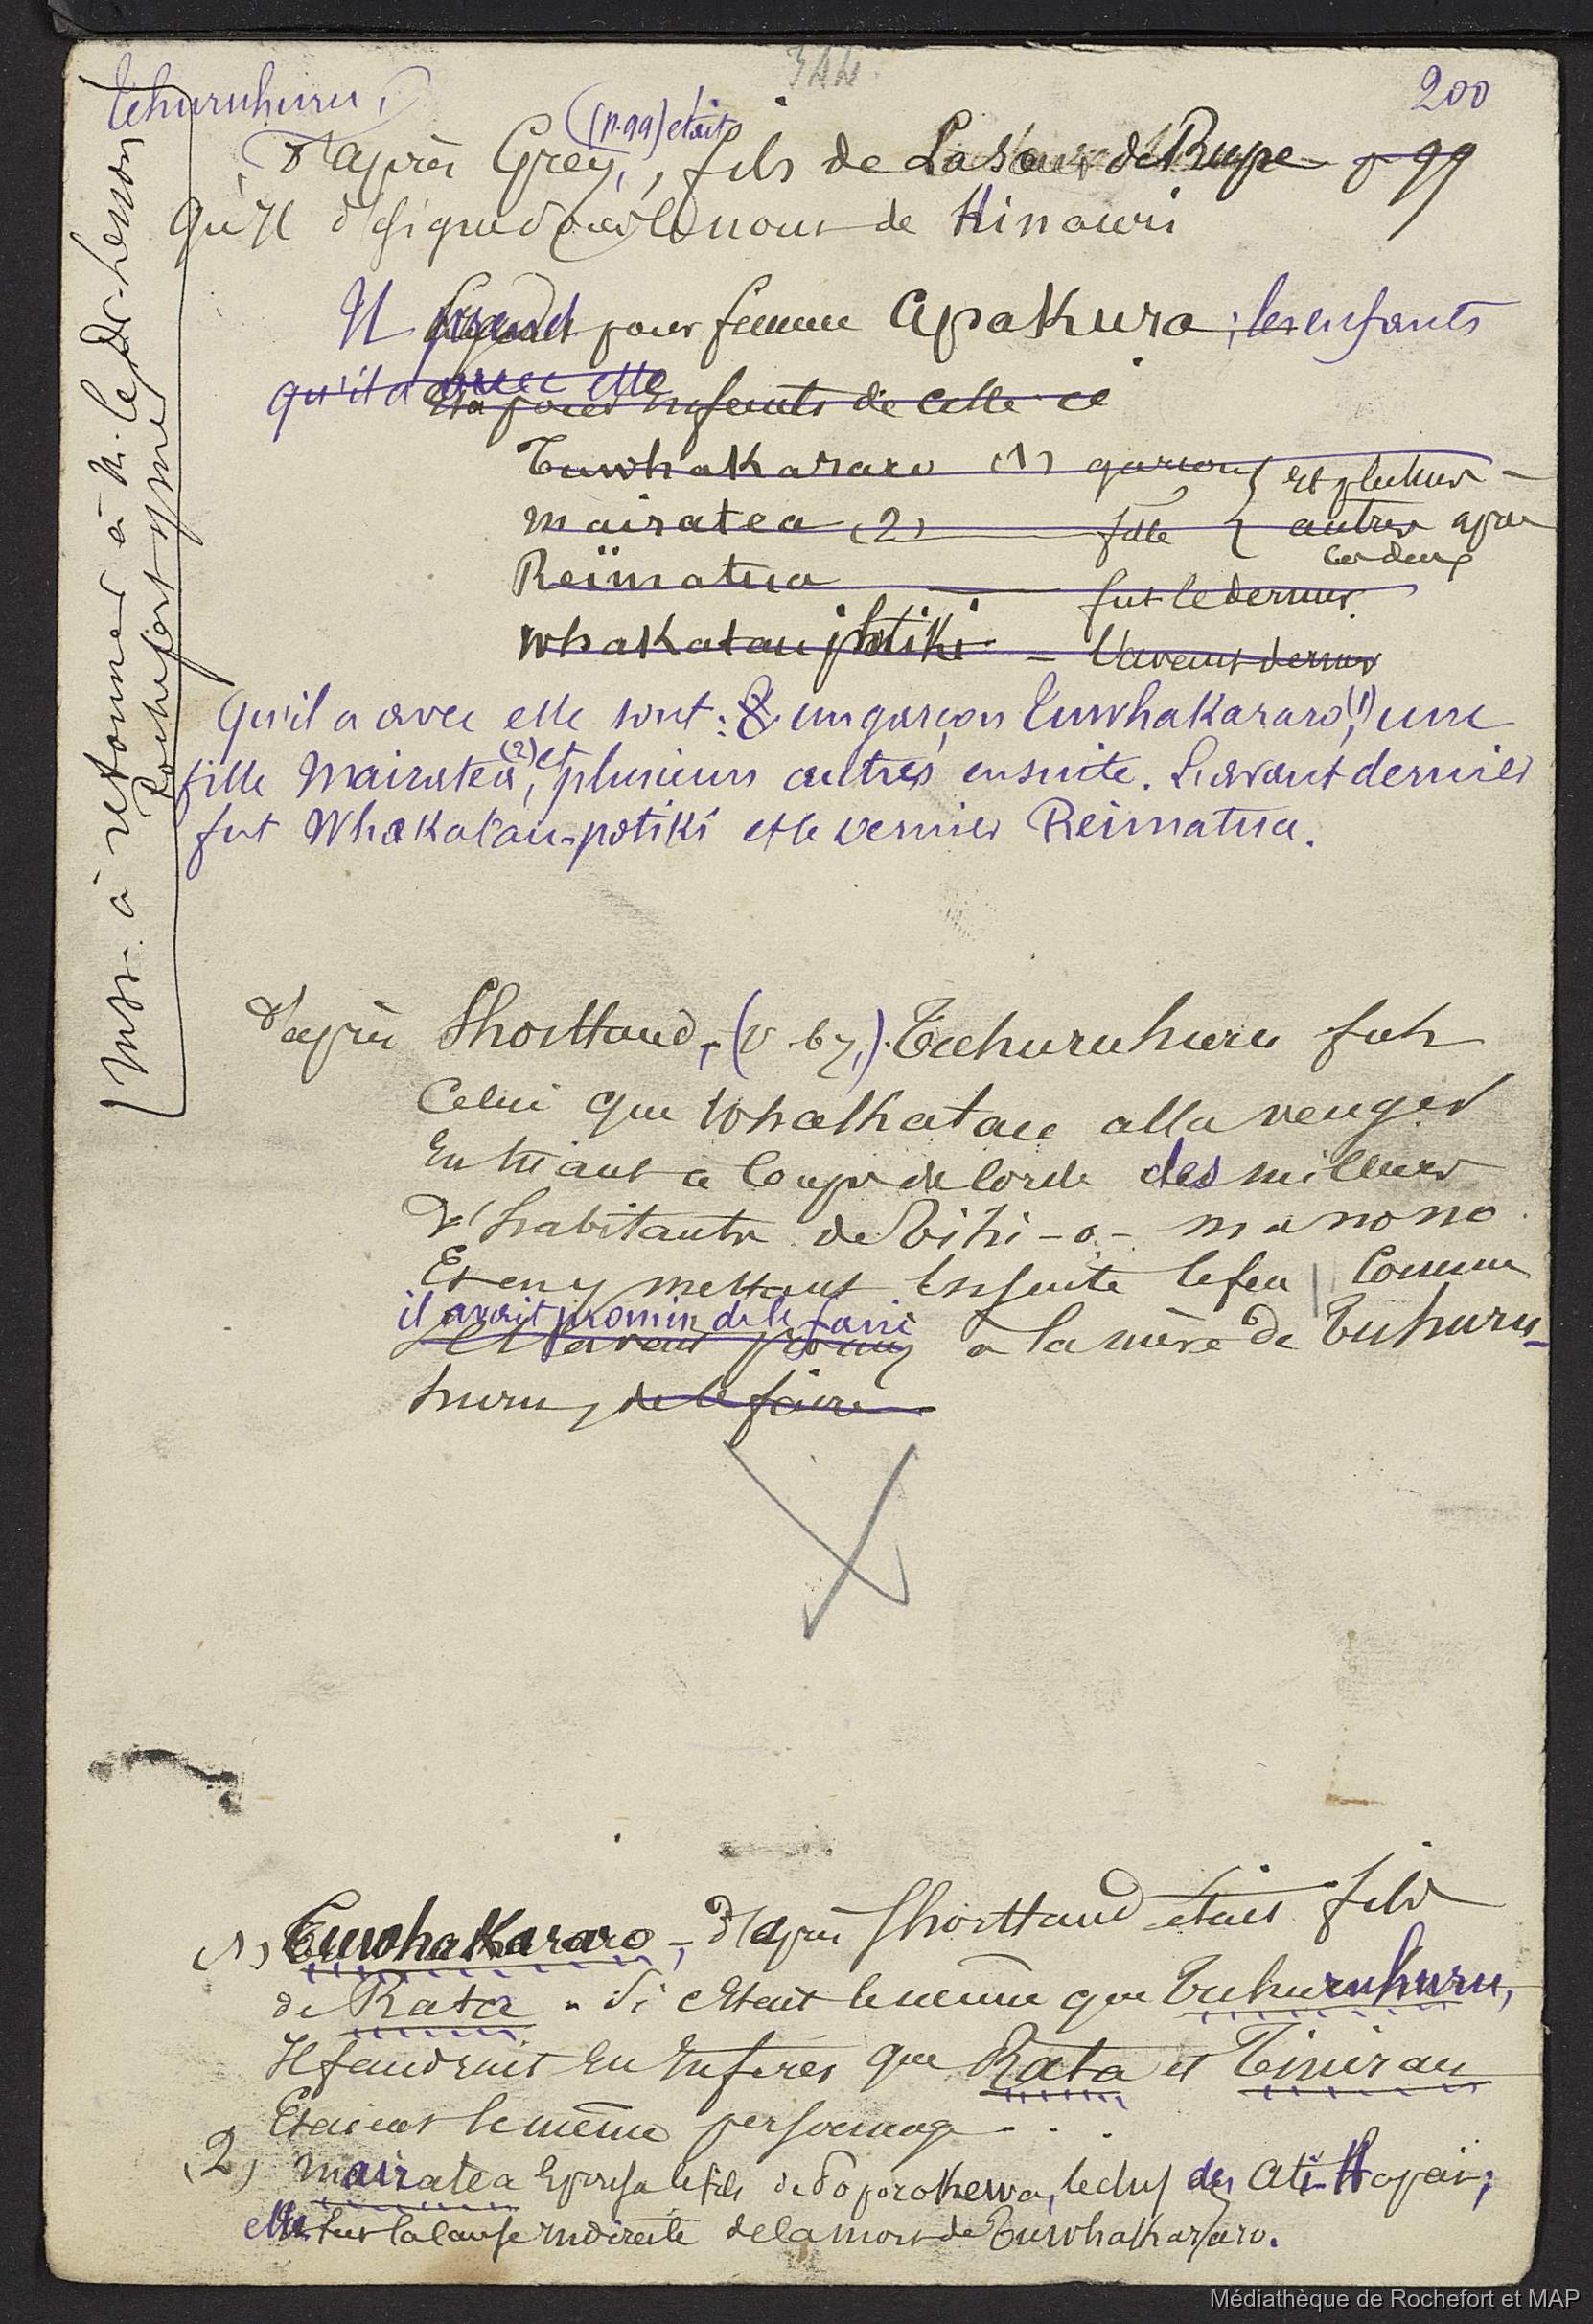 344
200
Tuhuruhuru,
D'après Grey, (p. 99) était fils de La sœur de Rupe p 99
qu'il désigne sous le nom de Hinauri
Il prend pour femme Apakura ; les enfants
qu'il a avec elle
et a pour enfants de celle-ci
Tuwhakararo (1) garçon } et plusieurs
mairatea (2) fille } autres après
ces deux
Reïmatua fut le dernier
Whakatau potiki - l'avant dernier
qu'il a avec elle sont : un garçon Tuwhakararo (1), une
fille Mairatea (2), et plusieurs autres ensuite. L'avant dernier
fut Whakatau-potiki et le dernier Reimatua.
d'après Shortland, (p 67,) Tuhuruhuru fut
Celui que Whakatau alla venger
En tuant à coups de corde des milliers
d'habitants de Tihi-o-manono
Et en y mettant ensuite le feu | Comme
il avait promis de le faire
il l'avait promis à la mère de Tuhuru-
huru, de le faire
(1) Tuwhakararo -, d'après Shortland était fils
de Rata. Si c'était le même que Tuhuruhuru,
Il faudrait en inférer que Rata et Tinirau
Etaient le même personnage ...
(2) Mairatea Epousa le fils de Poporokewa, le chef des Ati-Hapaï ;
elle fut la cause indirecte de la mort de Tuwhakararo.
[Mss. à retourner à M. le Dr. Lesson
Rochefort s/mer
Médiathèque de Rochefort et MAP